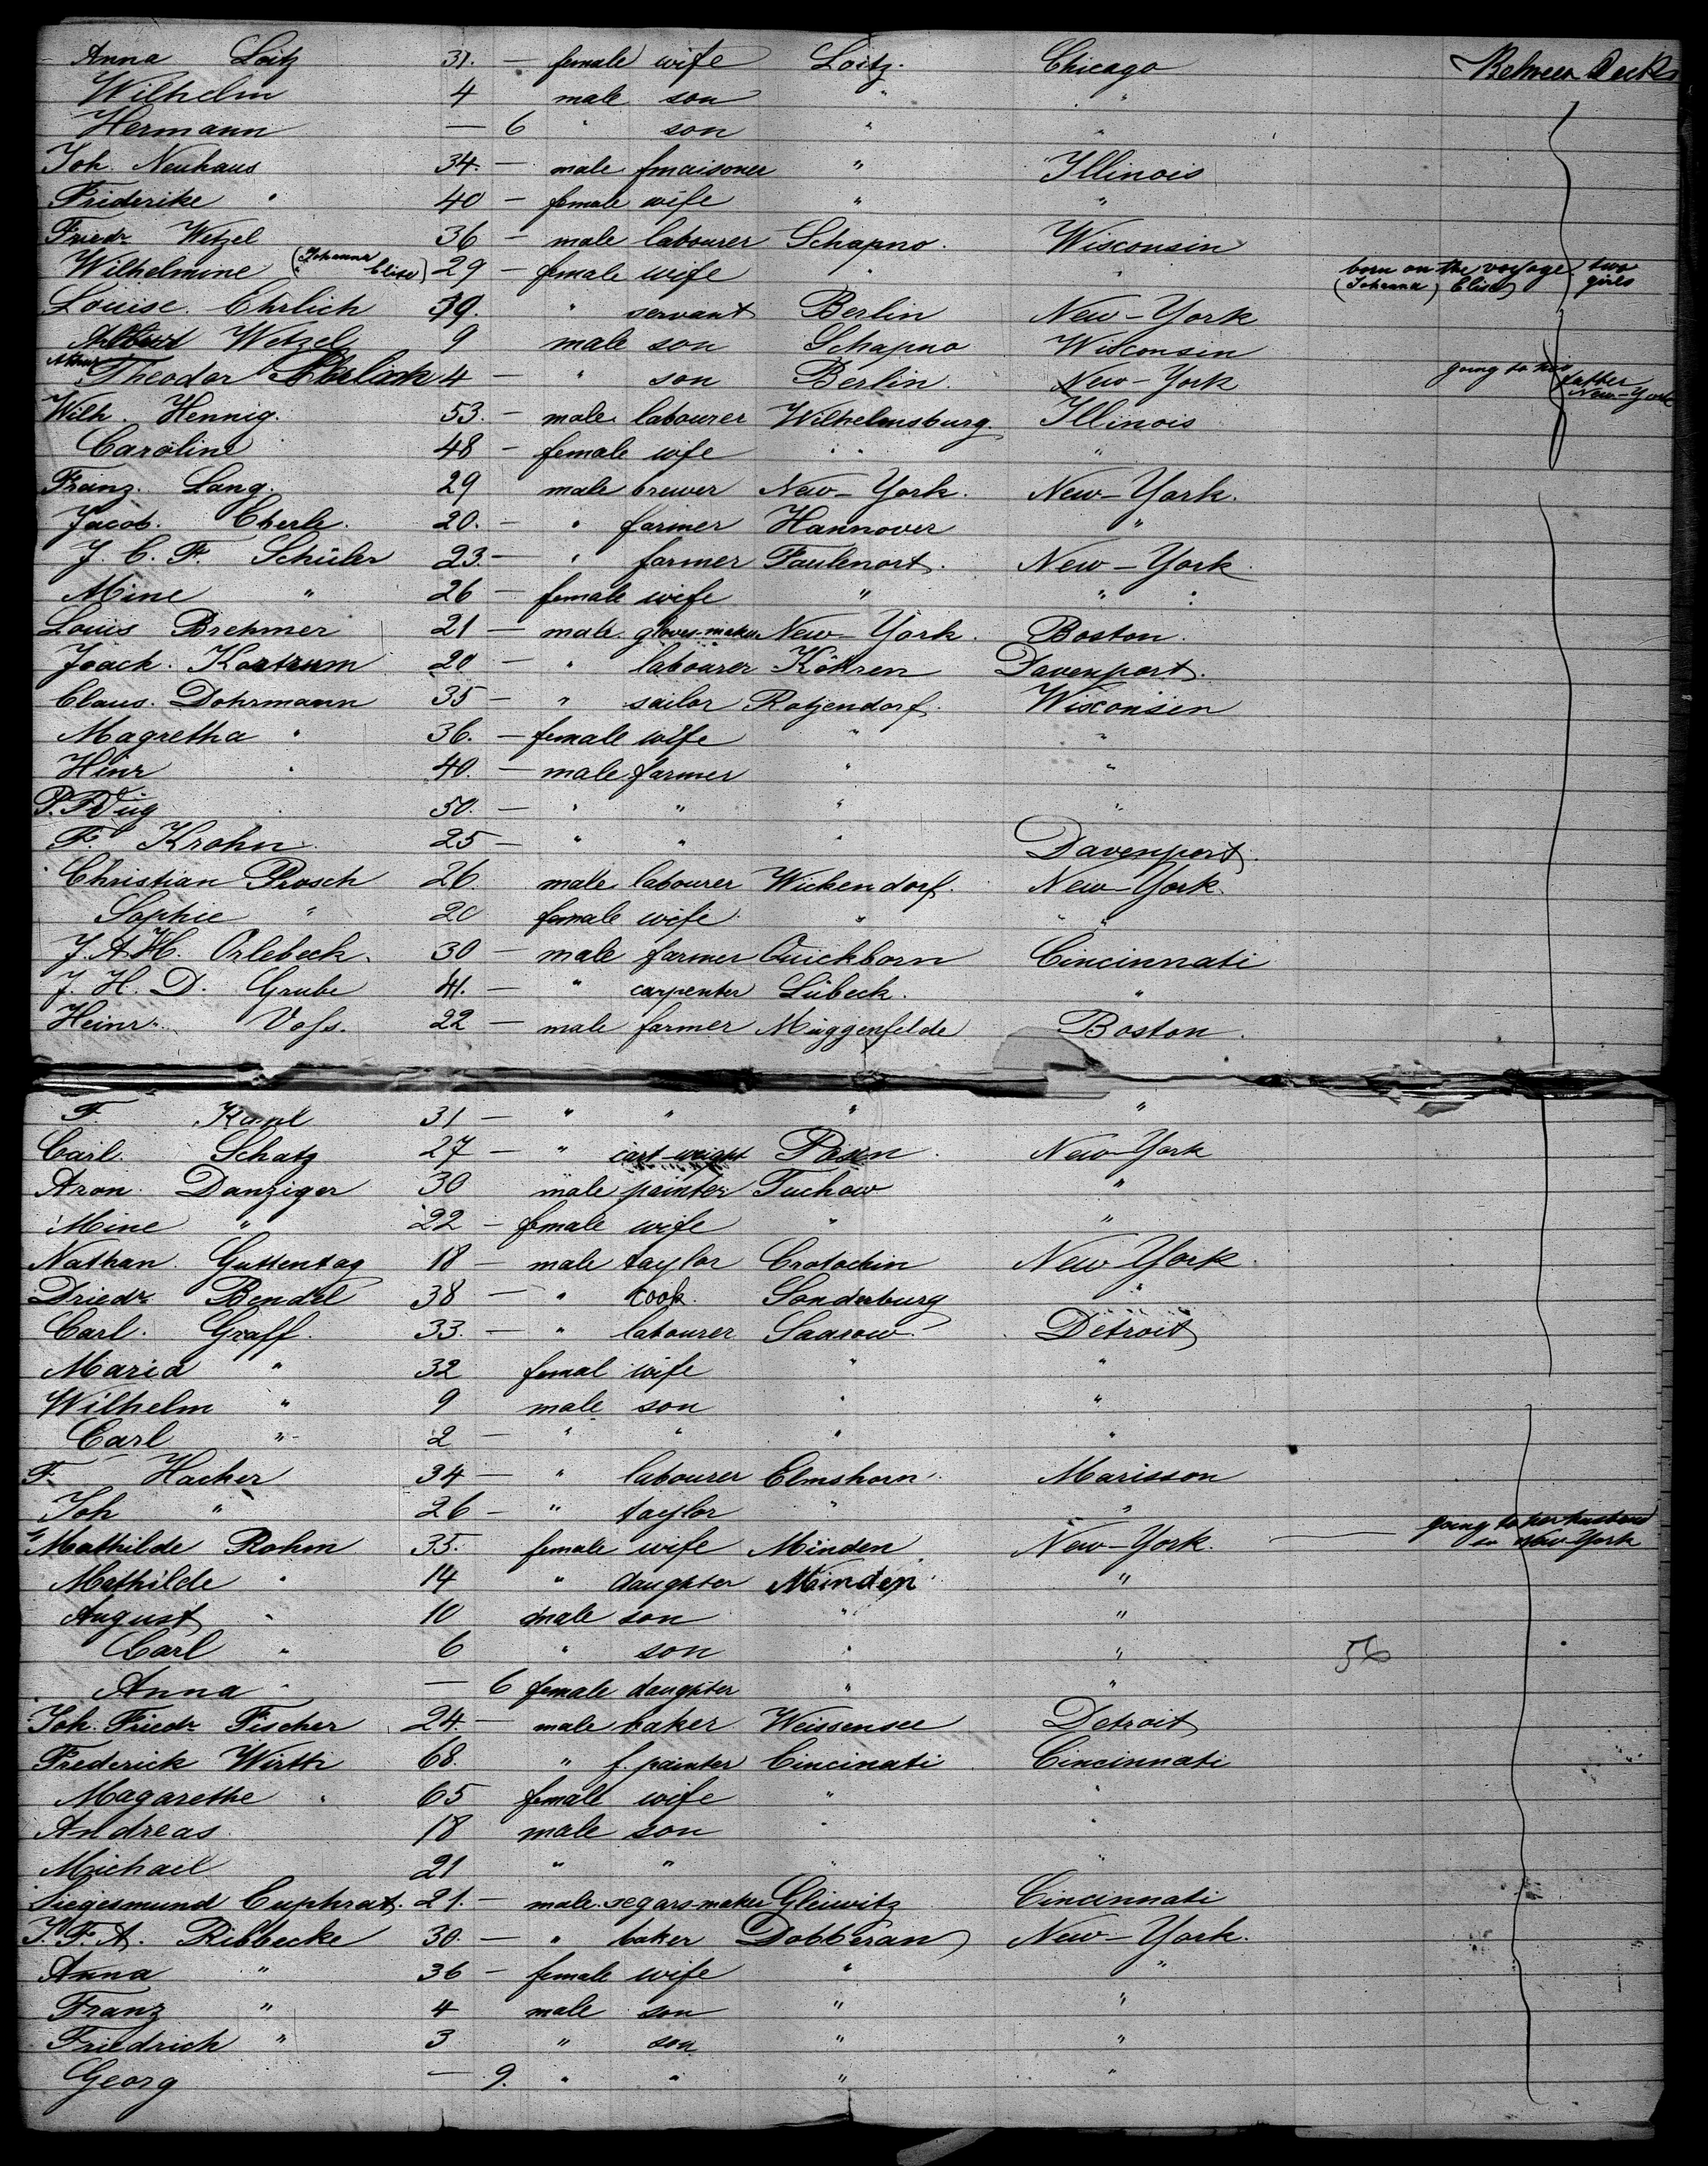 Anna Loitz 31. — female wife Loitz. Chicago Between Decks
Wilhelm 4 male son " "
Hermann — 6 " son " "
Joh. Neuhaus 34. — male fmaisoner " Illinois
Friderike " 40 — female wife " "
Friedr Wetzel 36 — male labourer Schapno. Wisconsin
Wilhelmine (Johanna " Elise) 29 — female wife " " born on the voyage two girls (Johanna, Elise)
Louise. Ehrlich 39. " servant Berlin New-York
Albert Wetzel 9 male son Schapno Wisconsin
Theodor 4 — " son Berlin. New-York going to his father New-York
Wilh. Hennig. 53. — male labourer Wilhelmsburg Illinois
Caroline 48 — female wife " " "
Franz. Lang. 29 male brewer New-York. New-York.
Jacob. Eberle. 20. — " farmer Hannover "
J. C. F. Schüler 23. — " farmer Faulenort. New-York.
Mine " 26 — female wife " " "
Louis Brehmer 21 — male gloves-maker New-York. Boston.
Joach. Kostrum 20 — " labourer Köhren Davenport.
Claus. Dohrmann 35 — " sailor Ratjendorf. Wisconsin
Magretha " 36. — female wife " "
Hinr " 40. — male farmer " "
P. 50. — " " " "
F. Krohn 25 — " " " Davenport.
Christian Prosch 26. male labourer Wickendorf. New-York.
Sophie " 20 female wife " " "
J. A. H. Orlebeck. 30 — male farmer Quickborn Cincinnati
J. H. D. Grube 41. — " carpenter Lübeck. "
Heinr. Vofs. 22 — male farmer Müggenfelde Boston.
F. 31 — " " " "
Carl. Schatz 27 — " cart-wright Posen. New-York
Aron. Danziger 30 male painter Tuchow "
Mine " 22 — female wife " "
Nathan. Guttentag 18 — male taylor Crotochin New-York.
Driedr Bendel 38 — " cook. Sonderburg "
Carl. Graff. 33. — " labourer Saarow. Detroit
Maria " 32 femal wife " "
Wilhelm " 9 male son " "
Carl " 2 — " " " "
F. Hacker 34 — " labourer Elmshorn. Marisson
Joh " 26 — " taylor " "
Mathilde Rohm 35. female wife Minden New-York. — going to her husband in New-York
Mathilde " 14 " daughter Minden "
August " 10 male son " "
Carl " 6 " son " " 56
Anna " — 6 female daughter " "
Joh. Friedr Fischer 24. — male baker Weissensee Detroit
Frederick Wirth 68. " f. painter Cincinati Cincinnati
Magarethe " 65 female wife " "
Andreas 18 male son " "
Michael 21 " " " "
Siegesmund Euphrat. 21. — male segars-maker Gleiwitz Cincinnati
J. F. A. Ribbecke 30. — " baker Dobberan New-York.
Anna " 36 — female wife " "
Franz " 4 male son " "
Friedrich " 3 " son " "
Georg — 9. " " " "